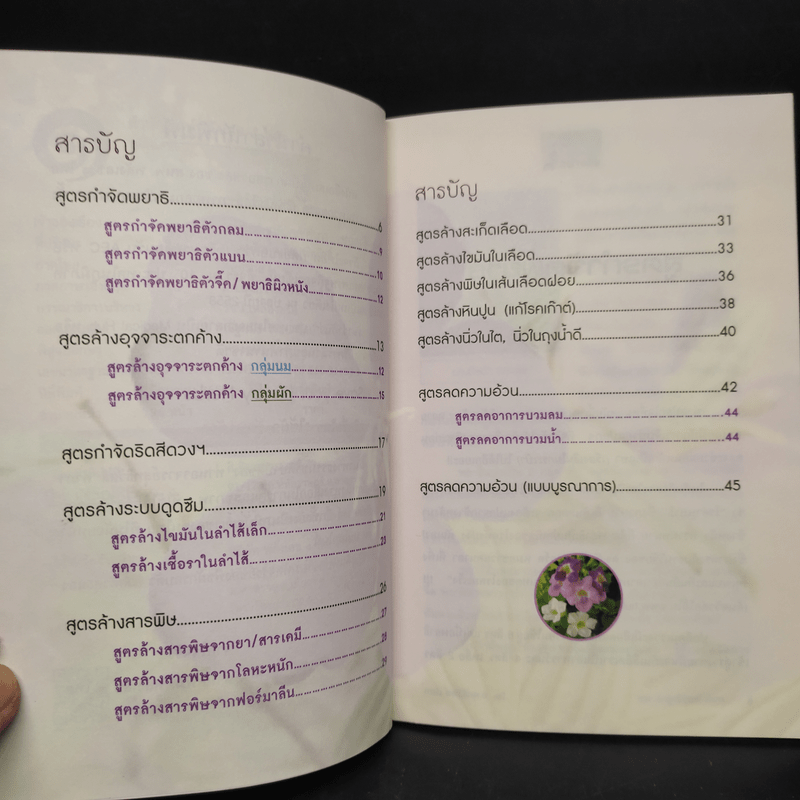 สารบัญ
สูตรกำจัดพยาธิ..........6
สูตรกำจัดพยาธิตัวกลม..........9
สูตรกำจัดพยาธิตัวแบน..........10
สูตรกำจัดพยาธิตัวจี๊ด/พยาธิผิวหนัง..........12
สูตรล้างอุจจาระตกค้าง..........13
สูตรล้างอุจจาระตกค้าง กลุ่มนม..........12
สูตรล้างอุจจาระตกค้าง กลุ่มผัก..........15
สูตรกำจัดริดสีดวงฯ..........17
สูตรล้างระบบดูดซึม..........19
สูตรล้างไขมันในลำไส้เล็ก..........21
สูตรล้างเชื้อราในลำไส้..........23
สูตรล้างสารพิษ..........26
สูตรล้างสารพิษจากยา/สารเคมี..........27
สูตรล้างสารพิษจากโลหะหนัก..........28
สูตรล้างสารพิษจากฟอร์มาลีน..........29
สารบัญ
สูตรล้างสะเก็ดเลือด..........31
สูตรล้างไขมันในเลือด..........33
สูตรล้างพิษในเส้นเลือดฝอย..........36
สูตรล้างหินปูน (แก้โรคเก๊าต์)..........38
สูตรล้างนิ่วในไต, นิ่วในถุงน้ำดี..........40
สูตรลดความอ้วน..........42
สูตรลดอาการบวมลม..........44
สูตรลดอาการบวมน้ำ..........44
สูตรลดความอ้วน (แบบบูรณาการ)..........45